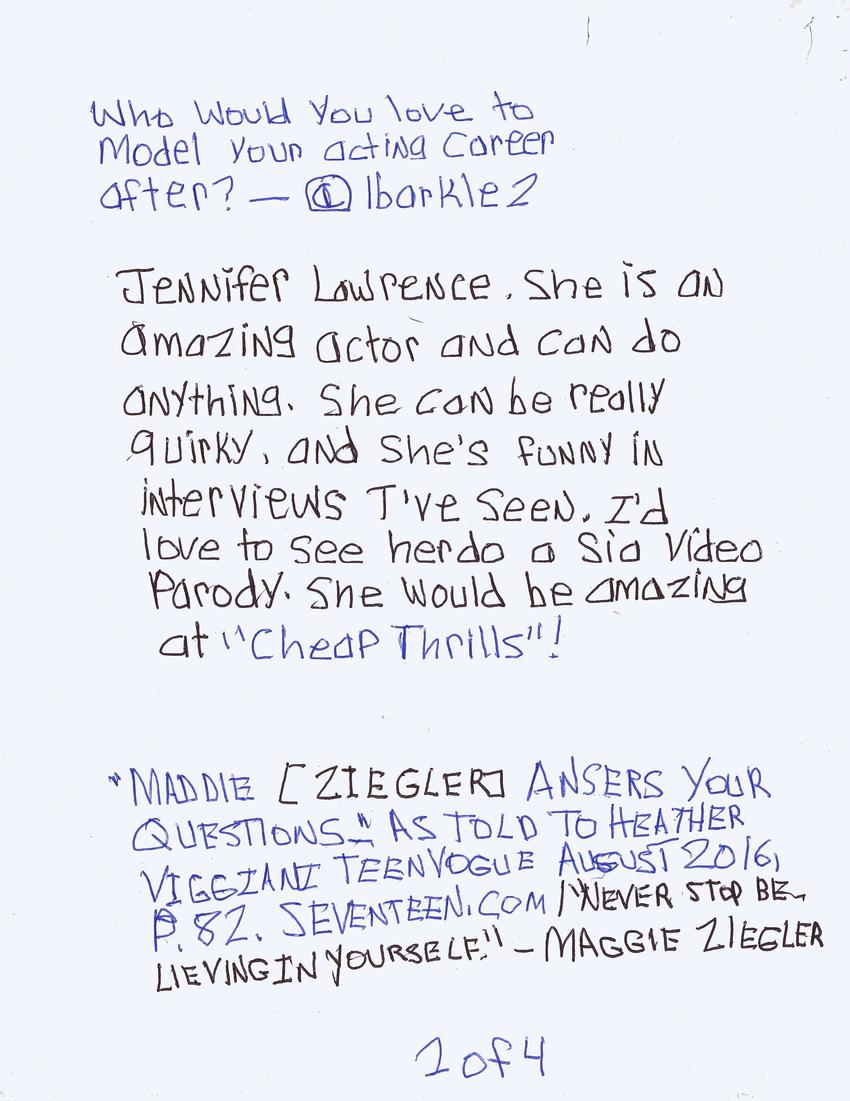 Who Would You love to
Model your acting Career
after? — @lbarkle2
Jennifer Lawrence. She is an
amazing actor and can do
anything. She can be really
quirky, and She's funny in
interviews I've Seen. I'd
love to See her do a Sia Video
Parody. She Would be amazing
at "Cheap Thrills"!
"MADDIE [ZIEGLER] ANSERS YOUR
QUESTIONS" AS TOLD TO HEATHER
VIGGIANI TEEN VOGUE AUGUST 2016,
P. 82. SEVENTEEN.COM / "NEVER STOP BE-
LIEVING IN YOURSELF." – MAGGIE ZIEGLER
1 of 4